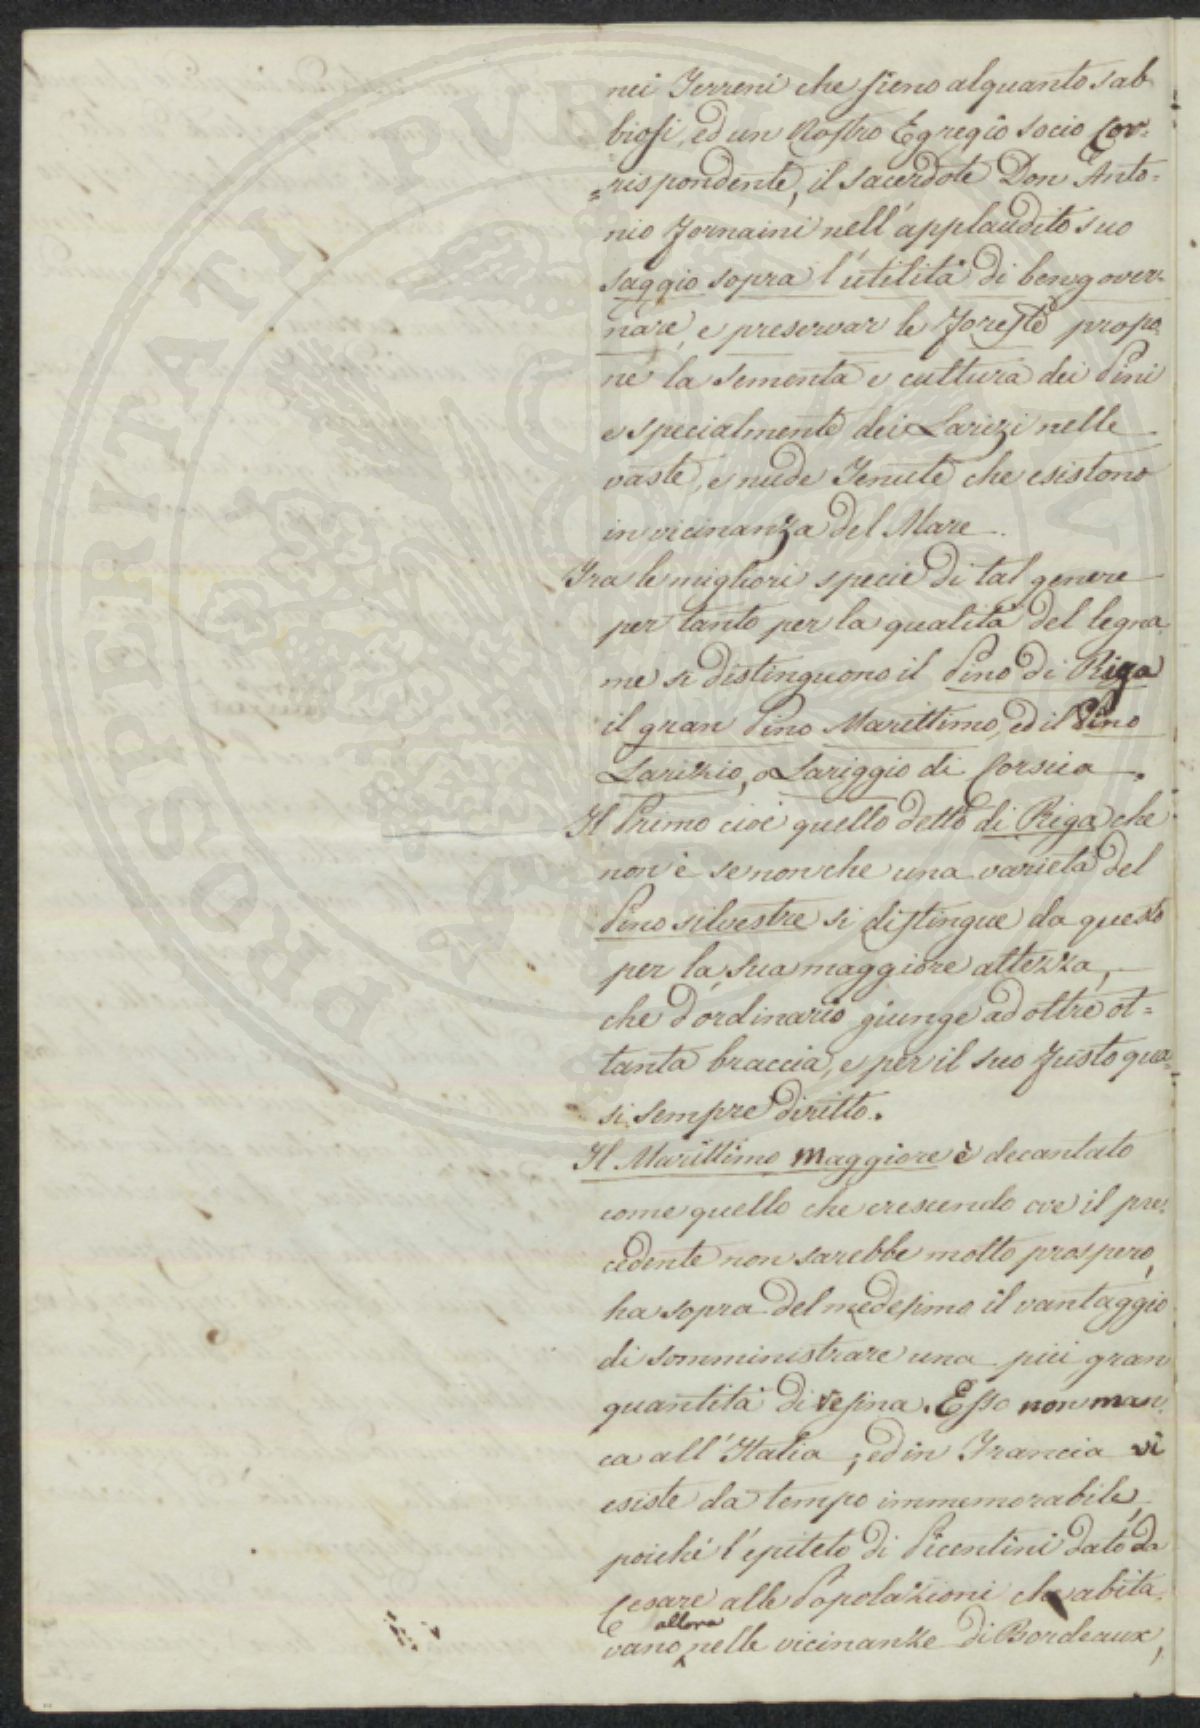 nei Terreni che sieno alquanto sab
biosi, ed un Nostro Egregio socio Cor=
=rispondente, il sacerdote Don Anto=
nio Fornaini nell'applaudito suo
saggio sopra l'utilità di bengover=
nare, e preservar le Foreste propo
ne la sementa e cultura dei Pini
e specialmente dei Larizi nelle
vaste, e nude Tenute che esistono
in vicinanza del Mare.
Tra le migliori specie di tal genere
per tanto per la qualità del legna
me si distinguono il Pino di Riga
il gran Pino Marittimo, ed il Pino
Larizio, o Lariggio di Corsica.
Il Primo cioè quello detto di Riga che
non è senonche una varietà del
Pino silvestre si distingue da questo
per la sua maggiore altezza,
che d'ordinario giunge ad oltre ot=
tanta braccia, e per il suo fusto qua=
si sempre diritto.
Il Marittimo Maggiore è decantato
come quello che crescendo ove il pre=
cedente non sarebbe molto prospero,
ha sopra del medesimo il vantaggio
di somministrare una più gran
quantità di resina. Esso non man=
ca all'Italia; ed in Francia vi
esiste da tempo immemorabile,
poiché l'epiteto di Picentini dato da
Cesare alle Popolazioni che abita=
allora
vano nelle vicinanze di Bordeaux,
PROSPERITATI PVBLICAE